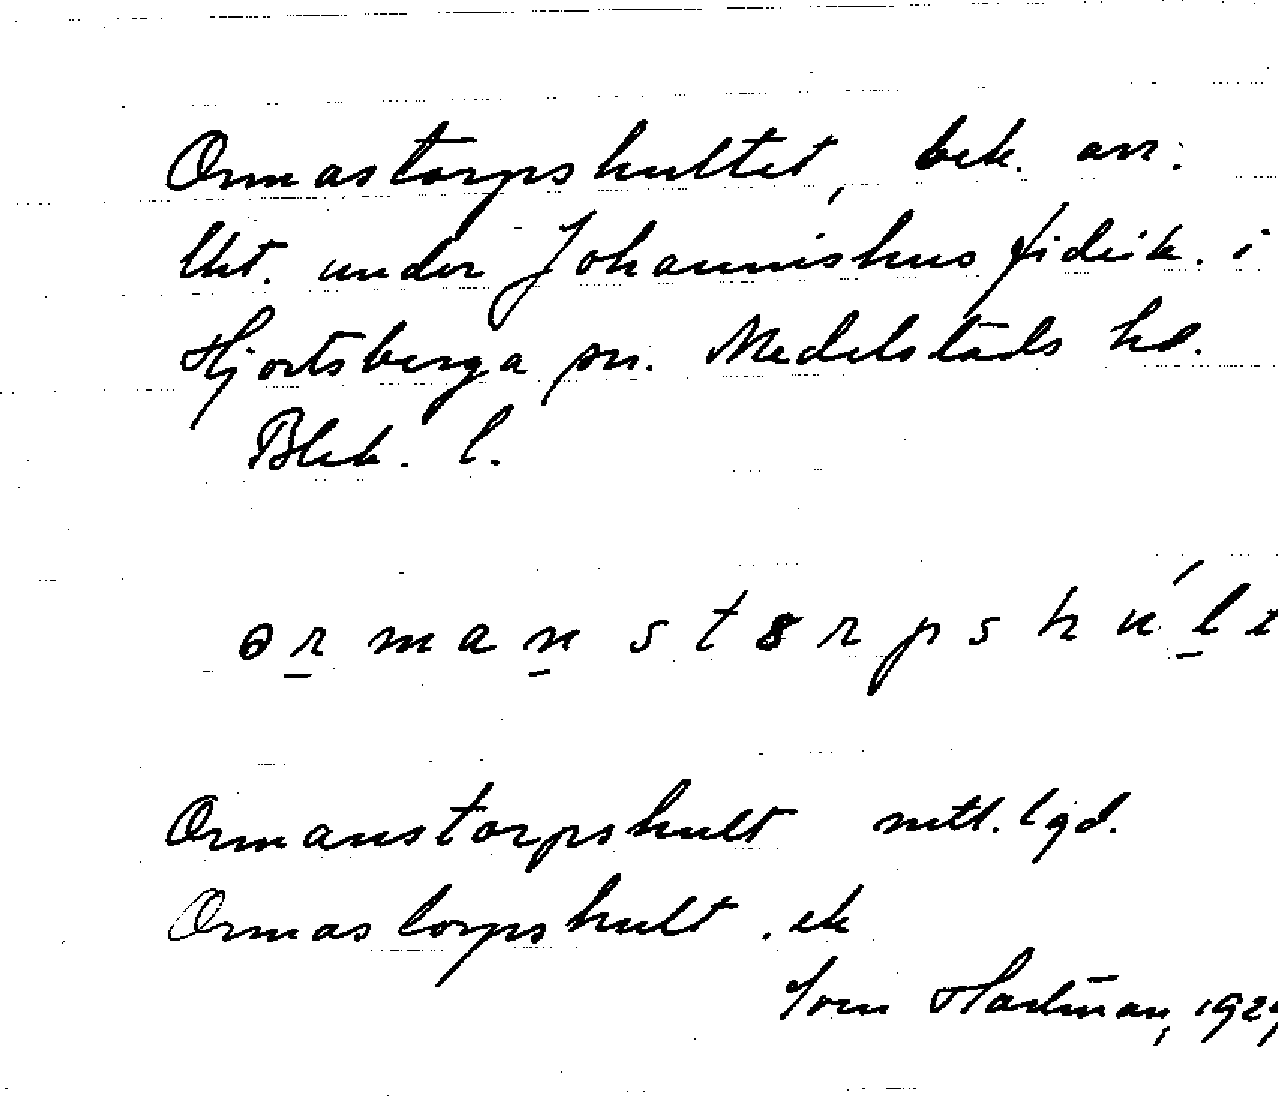 Ormastorpshultet, bek. arr.
lht. under Johannishus fideik. i
Hjortsberga sn. Medelstads hd.
Blek. l.
ormanstorpshúlt
Ormanstorpshult mtl. lgd.
Ormastorpshult . ek
Tom Hartman, 192